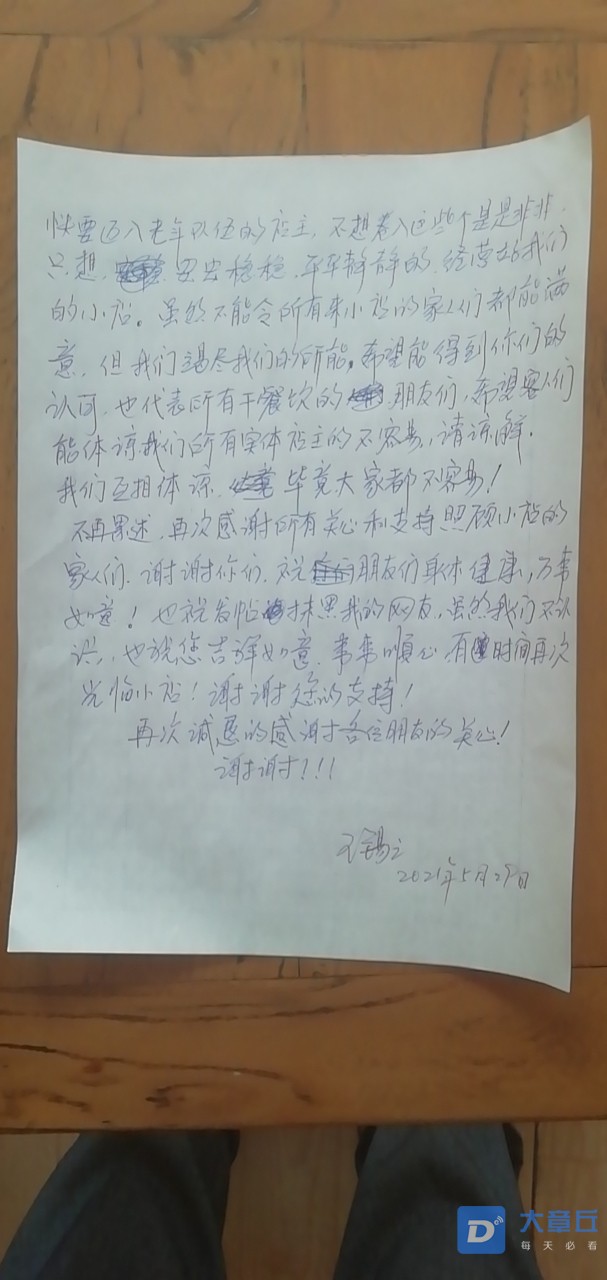 快要迈入老年队伍的店主，不想卷入这些个是是非非，
只想，安安稳稳、平平静静的，经营好我们
的小店。虽然不能令所有来小店的家人们都能满
意，但我们竭尽我们的所能。希望能得到你们的
认可，也代表所有干餐饮的朋友们，希望客人们
能体谅我们所有实体店主的不容易，请谅解。
我们互相体谅，毕竟大家都不容易！
不再累述，再次感谢所有关心和支持照顾小店的
家人们，谢谢你们，祝朋友们身体健康，万事
如意！也祝发帖抹黑我的网友，虽然我们不认
识，也祝您吉祥如意，事事顺心，有时间再次
光临小店！谢谢您的支持！
再次诚恳的感谢各位朋友的关心！
谢谢！！！
2021年5月29日
大章丘
每天必看